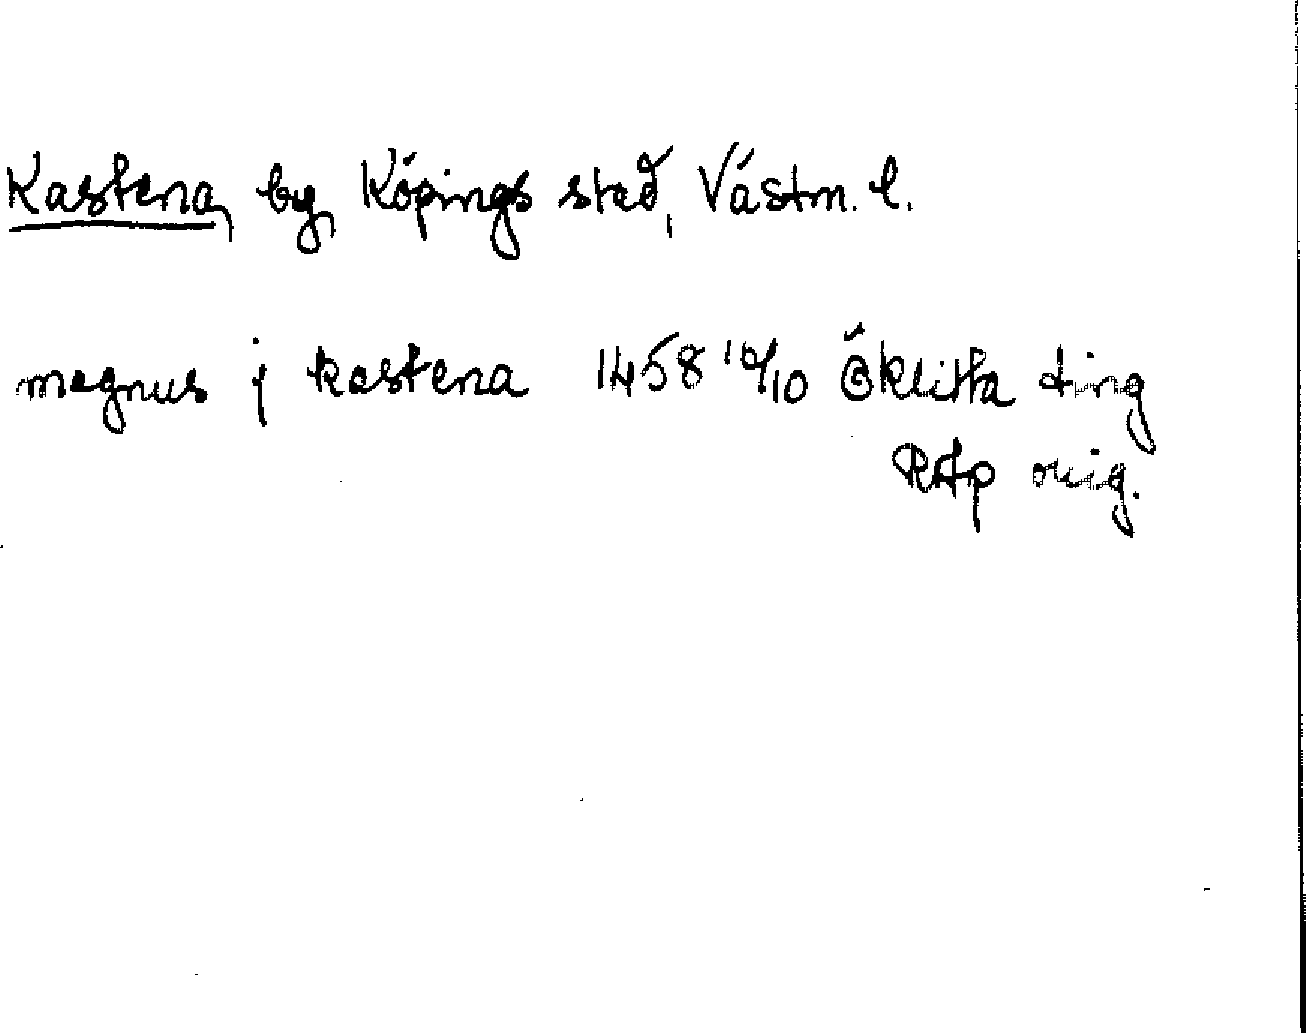 Kastena, by, Köpings stad, Västm. l.
magnus j kastena 1458 10/10 Åklitta ting
RAp orig.